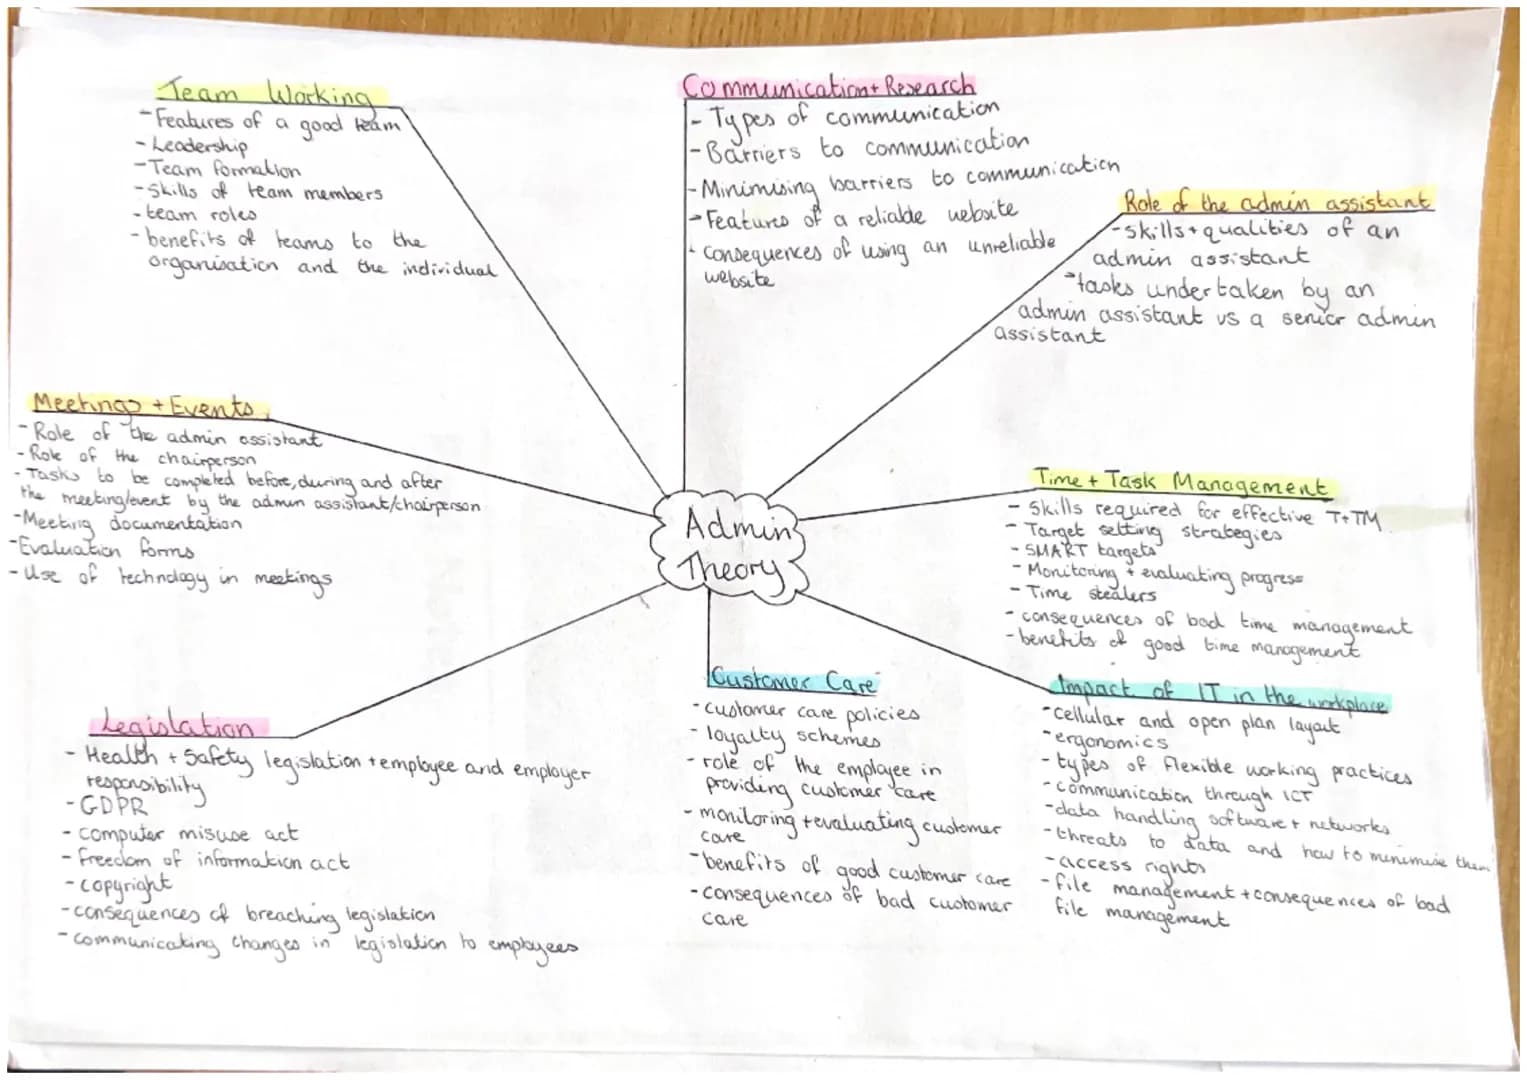 Team Working
- Features of a good team
- Leadership
- Team formation
- Skills of team members
- team roles
- benefits of teams to the
organisation and the individual
Communication + Research
- Types of communication
- Barriers to communication
- Minimising barriers to communication
- Features of a reliable website
- consequences of using an unreliable
website
Role of the admin assistant
- skills + qualities of an
admin assistant
- tasks undertaken by an
admin assistant vs a senior admin
assistant
Meetings + Events
- Role of the admin assistant
- Role of the chairperson
- Tasks to be completed before, during and after
the meeting/event by the admin assistant/chairperson
- Meeting documentation
- Evaluation forms
- Use of technology in meetings
Admin
Theory
Time + Task Management
- Skills required for effective T+TM
- Target setting strategies
- SMART targets
- Monitoring + evaluating progress
- Time stealers
- consequences of bad time management
- benefits of good time management
Legislation
- Health + Safety legislation + employee and employer
responsibility
- GDPR
- computer misuse act
- freedom of information act
- copyright
- consequences of breaching legislation
- communicating changes in legislation to employees
Customer Care
- customer care policies
- loyalty schemes
- role of the employee in
providing customer care
- monitoring + evaluating customer
care
- benefits of good customer care
- consequences of bad customer
care
Impact of IT in the workplace
- cellular and open plan layout
- ergonomics
- types of flexible working practices
- communication through ICT
- data handling software + networks
- threats to data and how to minimise them
- access rights
- file management + consequences of bad
file management